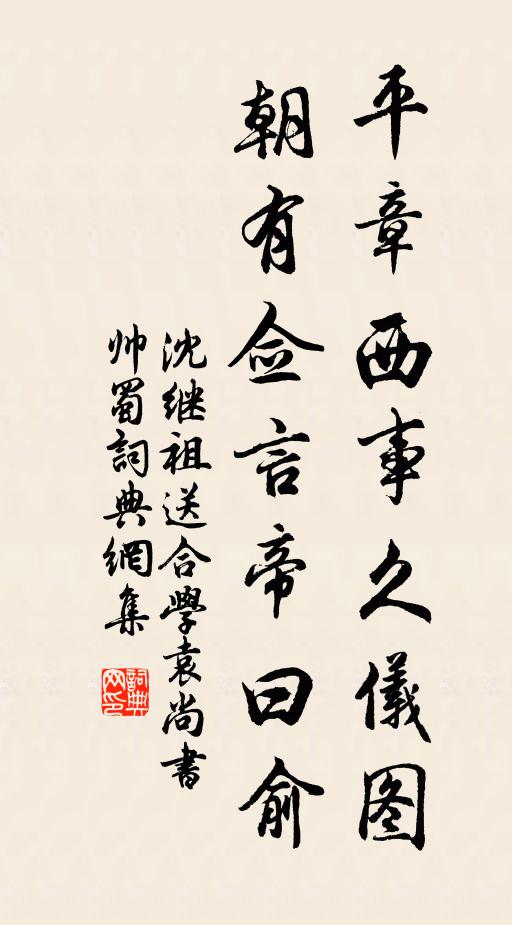 平章西事久儀图
朝有佥言帝曰俞
沈继祖送合學袁尚書
帅蜀詞典網集
詞典网印